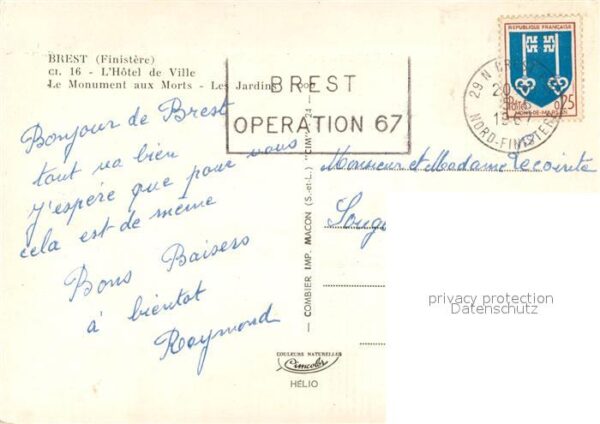 BREST (Finistère)
CI. 16 - L'Hôtel de Ville
Le Monument aux Morts - Les Jardins
BREST
OPERATION 67
REPUBLIQUE FRANÇAISE
0,25
MONT-DE-MARSAN
29 N BREST
20
1967
NORD-FINISTERE
Bonjour de Brest
tout va bien
J'espère que pour vous
cela est de même
Bons Baisers
à bientot
Raymond
Monsieur et Madame Lecointe
COMBIER IMP. MACON (S.-et-L.) "CIM"
COULEURS NATURELLES
Cimcolor
HÉLIO
privacy protection
Datenschutz